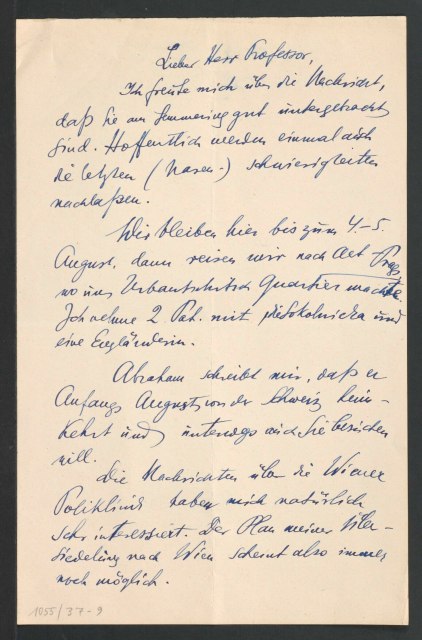 Lieber Herr Professor,
Ich freute mich über die Nachricht,
daß Sie am Semmering gut untergebracht
sind. Hoffentlich werden einmal auch
die letzten (Nasen-) schwierigkeiten
nachlaßen.
Wir bleiben hier bis zum 4–5.
August, dann reisen wir nach Alt Prags
wo uns Urbantschitsch Quartier machte.
Ich nehme 2 Pat. mit, die Sokolnicka und
eine Engländerin.
Abraham schreibt mir, daß er
Anfangs August von der Schweiz heim-
kehrt und unterwegs auch Sie besuchen
will.
Die Nachrichten über die Wiener
Poliklinik haben mich natürlich
sehr interessiert. Der Plan meiner Über-
siedelung nach Wien scheint also immer
noch möglich.
1055/37-9